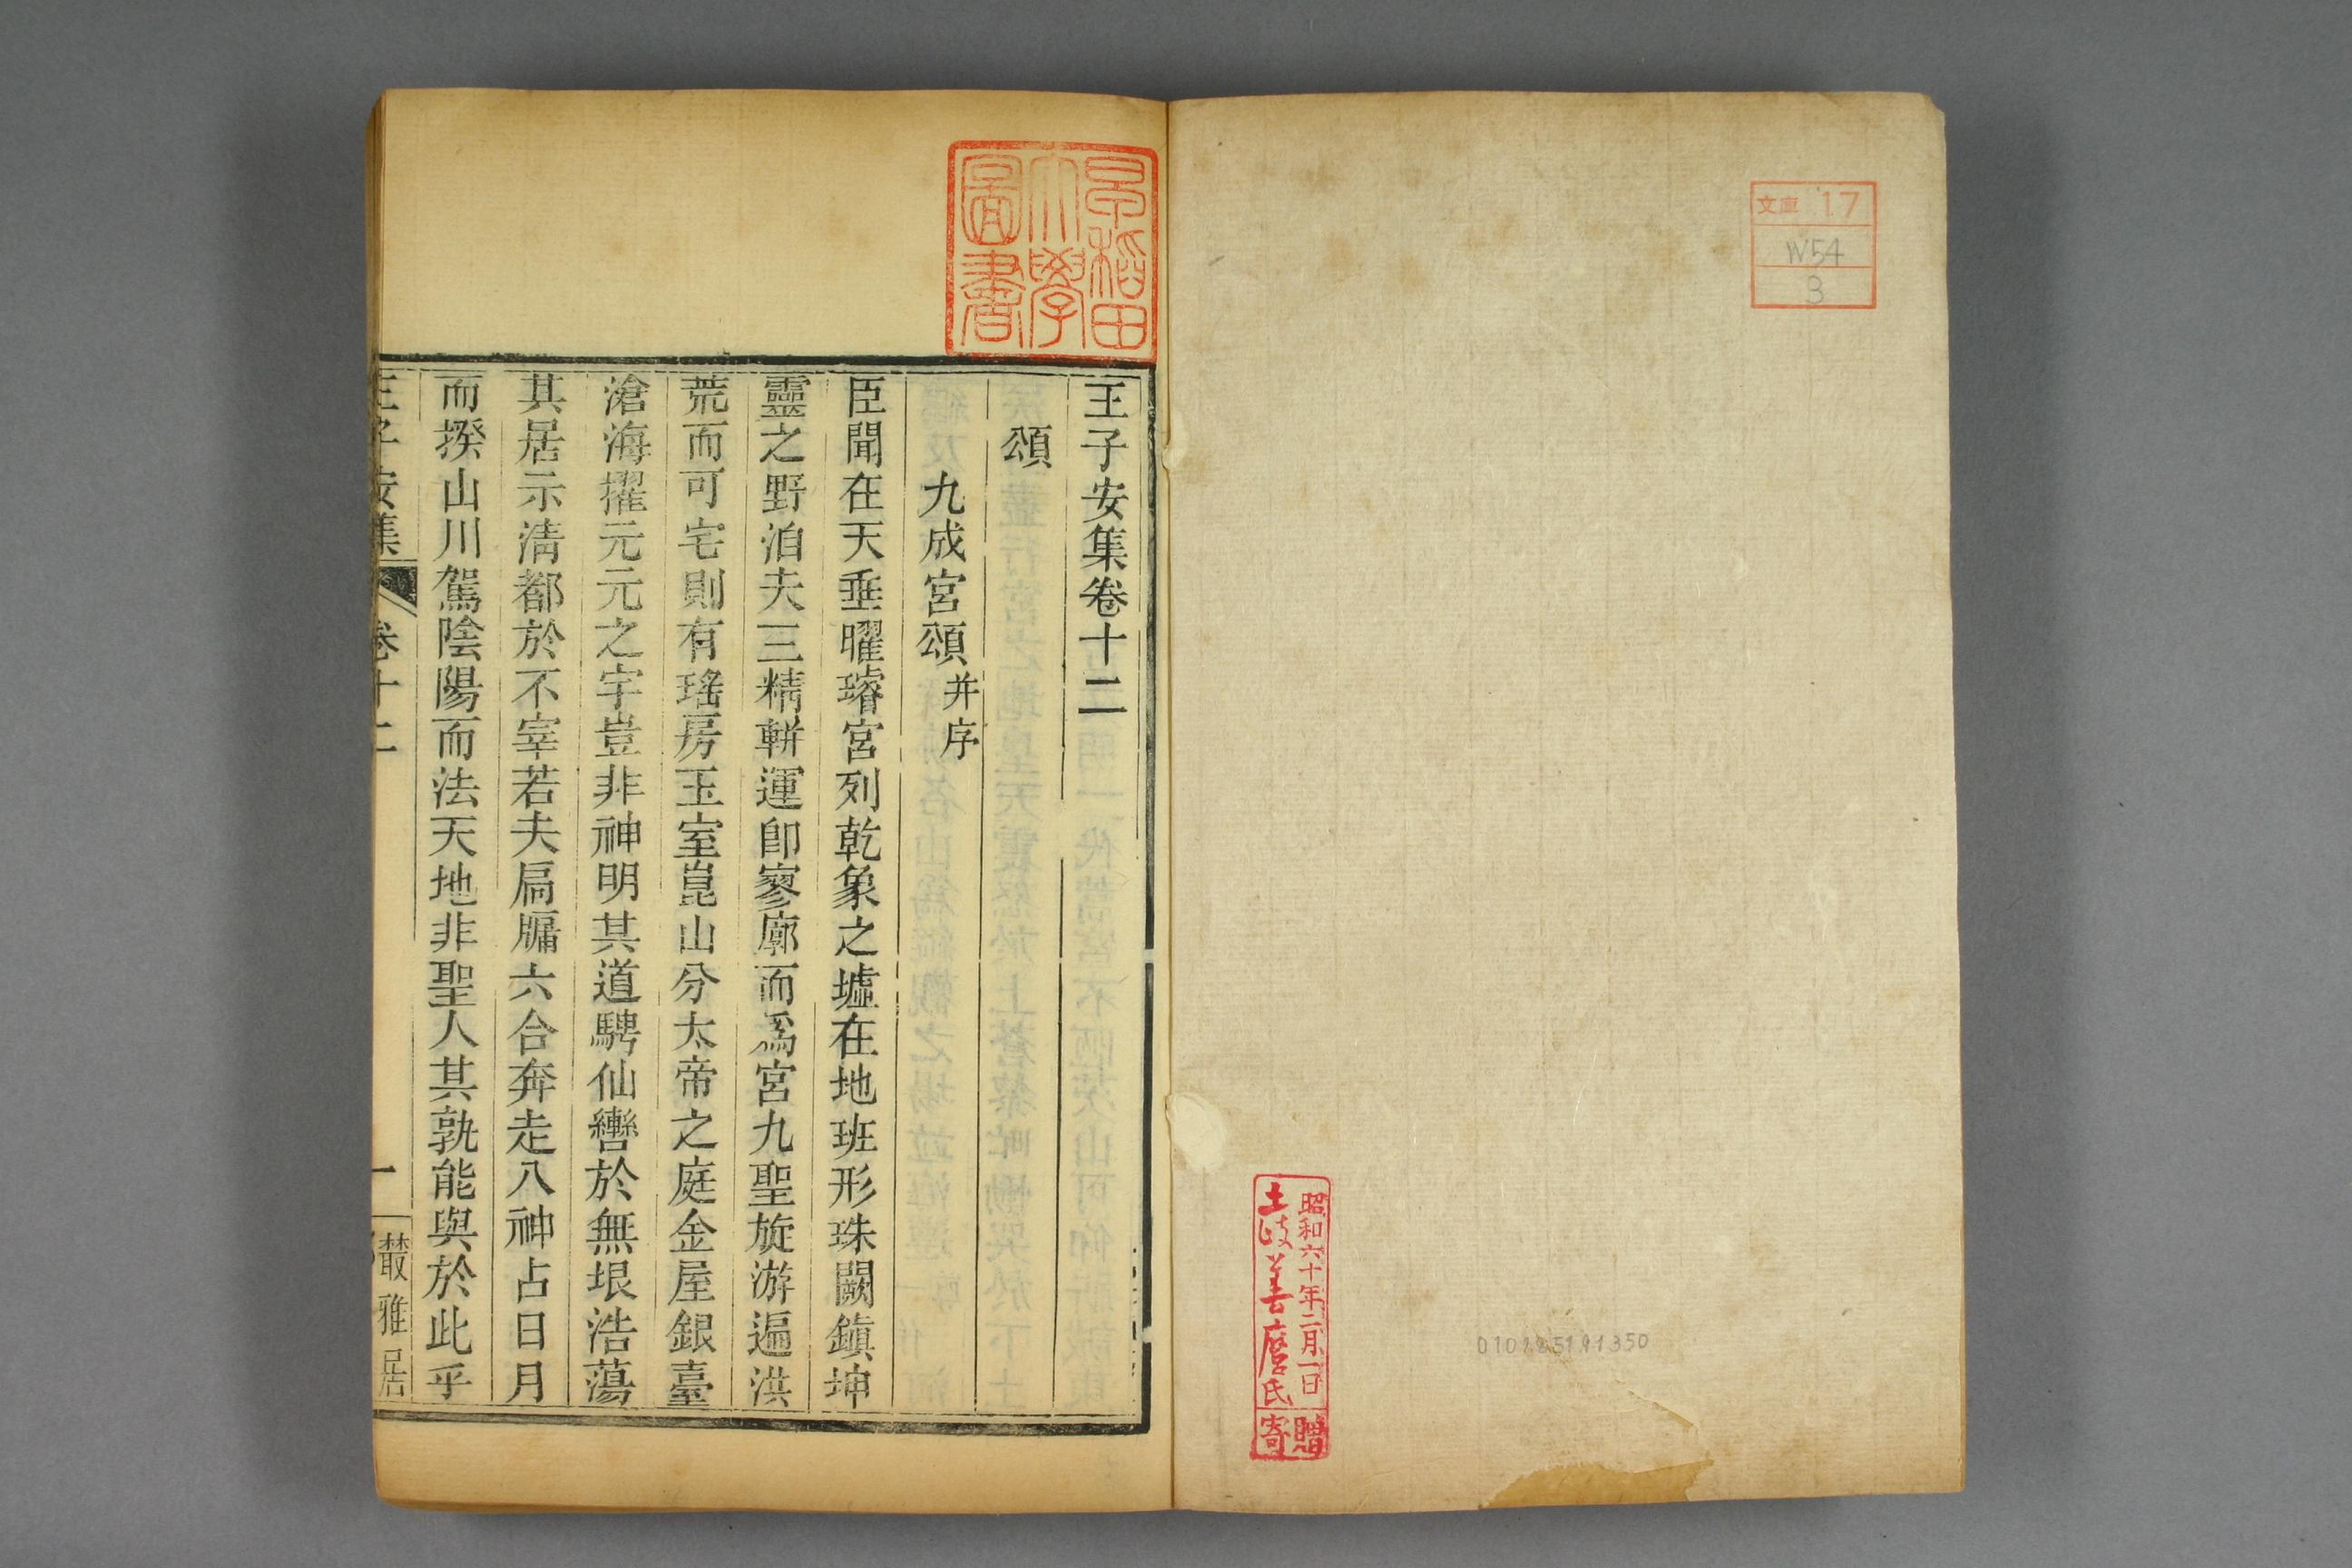 文庫 17
W54
3
昭和六十年二月一日
土岐善麿氏
寄贈
010185191350
早稲田
大學
圖書
王子安集卷十二
頌
九成宮頌并序
臣聞在天垂曜璿宮列乾象之墟在地班形珠闕鎮坤
靈之野洎夫三精輧運卽寥廓而爲宮九聖旋游遍洪
荒而可宅則有瑤房玉室崑山分太帝之庭金屋銀臺
滄海擢元元之宇豈非神明其道騁仙轡於無垠浩蕩
其居示淸都於不宰若夫扃牖六合奔走八神占日月
而揆山川駕陰陽而法天地非聖人其孰能與於此乎
王子安集 卷十二 一 叢雅居